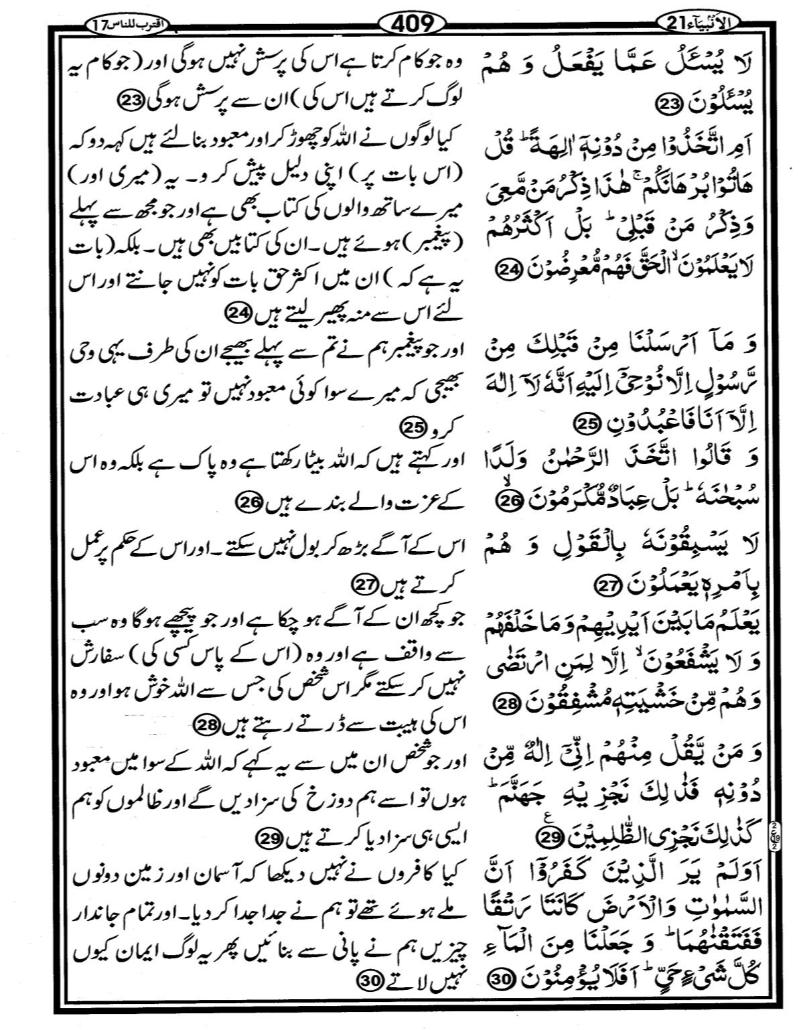 الاَنْبِيَآء 21
409
اقترب للناس 17
لَا يُسْـَٔلُ عَمَّا يَفْعَلُ وَ هُمْ
يُسْـَٔلُوْنَ 23
اَمِ اتَّخَذُوْا مِنْ دُوْنِهٖۤ اٰلِهَةً ؕ قُلْ
هَاتُوْا بُرْهَانَكُمْ ۚ هٰذَا ذِكْرُ مَنْ مَّعِيَ
وَ ذِكْرُ مَنْ قَبْلِيْ ؕ بَلْ اَكْثَرُهُمْ
لَا يَعْلَمُوْنَ ۙ الْحَقَّ فَهُمْ مُّعْرِضُوْنَ 24
وَ مَاۤ اَرْسَلْنَا مِنْ قَبْلِكَ مِنْ
رَّسُوْلٍ اِلَّا نُوْحِيْۤ اِلَيْهِ اَنَّهٗ لَاۤ اِلٰهَ
اِلَّاۤ اَنَا فَاعْبُدُوْنِ 25
وَ قَالُوا اتَّخَذَ الرَّحْمٰنُ وَلَدًا
سُبْحٰنَهٗ ؕ بَلْ عِبَادٌ مُّكْرَمُوْنَ ۙ 26
لَا يَسْبِقُوْنَهٗ بِالْقَوْلِ وَ هُمْ
بِاَمْرِهٖ يَعْمَلُوْنَ 27
يَعْلَمُ مَا بَيْنَ اَيْدِيْهِمْ وَ مَا خَلْفَهُمْ
وَ لَا يَشْفَعُوْنَ ۙ اِلَّا لِمَنِ ارْتَضٰى
وَ هُمْ مِّنْ خَشْيَتِهٖ مُشْفِقُوْنَ 28
وَ مَنْ يَّقُلْ مِنْهُمْ اِنِّيْۤ اِلٰهٌ مِّنْ
دُوْنِهٖ فَذٰلِكَ نَجْزِيْهِ جَهَنَّمَ ؕ
كَذٰلِكَ نَجْزِي الظّٰلِمِيْنَ ع 29
اَوَلَمْ يَرَ الَّذِيْنَ كَفَرُوْۤا اَنَّ
السَّمٰوٰتِ وَ الْاَرْضَ كَانَتَا رَتْقًا
فَفَتَقْنٰهُمَا ؕ وَ جَعَلْنَا مِنَ الْمَآءِ
كُلَّ شَيْءٍ حَيٍّ ؕ اَفَلَا يُؤْمِنُوْنَ 30
وہ جو کام کرتا ہے اس کی پرسش نہیں ہوگی اور (جو کام یہ
لوگ کرتے ہیں اس کی) ان سے پرسش ہوگی 23
کیا لوگوں نے اللہ کو چھوڑ کر اور معبود بنا لئے ہیں کہہ دو کہ
(اس بات پر) اپنی دلیل پیش کرو۔ یہ (میری اور)
میرے ساتھ والوں کی کتاب بھی ہے اور جو مجھ سے پہلے
(پیغمبر) ہوئے ہیں۔ ان کی کتابیں بھی ہیں۔ بلکہ (بات
یہ ہے کہ) ان میں اکثر حق بات کو نہیں جانتے اور اس
لئے اس سے منہ پھیر لیتے ہیں 24
اور جو پیغمبر ہم نے تم سے پہلے بھیجے ان کی طرف یہی وحی
بھیجی کہ میرے سوا کوئی معبود نہیں تو میری ہی عبادت
کرو 25
اور کہتے ہیں کہ اللہ بیٹا رکھتا ہے وہ پاک ہے بلکہ وہ اس
کے عزت والے بندے ہیں 26
اس کے آگے بڑھ کر بول نہیں سکتے۔ اور اس کے حکم پر عمل
کرتے ہیں 27
جو کچھ ان کے آگے ہو چکا ہے اور جو پیچھے ہوگا وہ سب
سے واقف ہے اور وہ (اس کے پاس کسی کی) سفارش
نہیں کر سکتے مگر اس شخص کی جس سے اللہ خوش ہو اور وہ
اس کی ہیبت سے ڈرتے رہتے ہیں 28
اور جو شخص ان میں سے یہ کہے کہ اللہ کے سوا میں معبود
ہوں تو اسے ہم دوزخ کی سزا دیں گے اور ظالموں کو ہم
ایسی ہی سزا دیا کرتے ہیں 29
کیا کافروں نے نہیں دیکھا کہ آسمان اور زمین دونوں
ملے ہوئے تھے تو ہم نے جدا جدا کر دیا۔ اور تمام جاندار
چیزیں ہم نے پانی سے بنائیں پھر یہ لوگ ایمان کیوں
نہیں لاتے 30